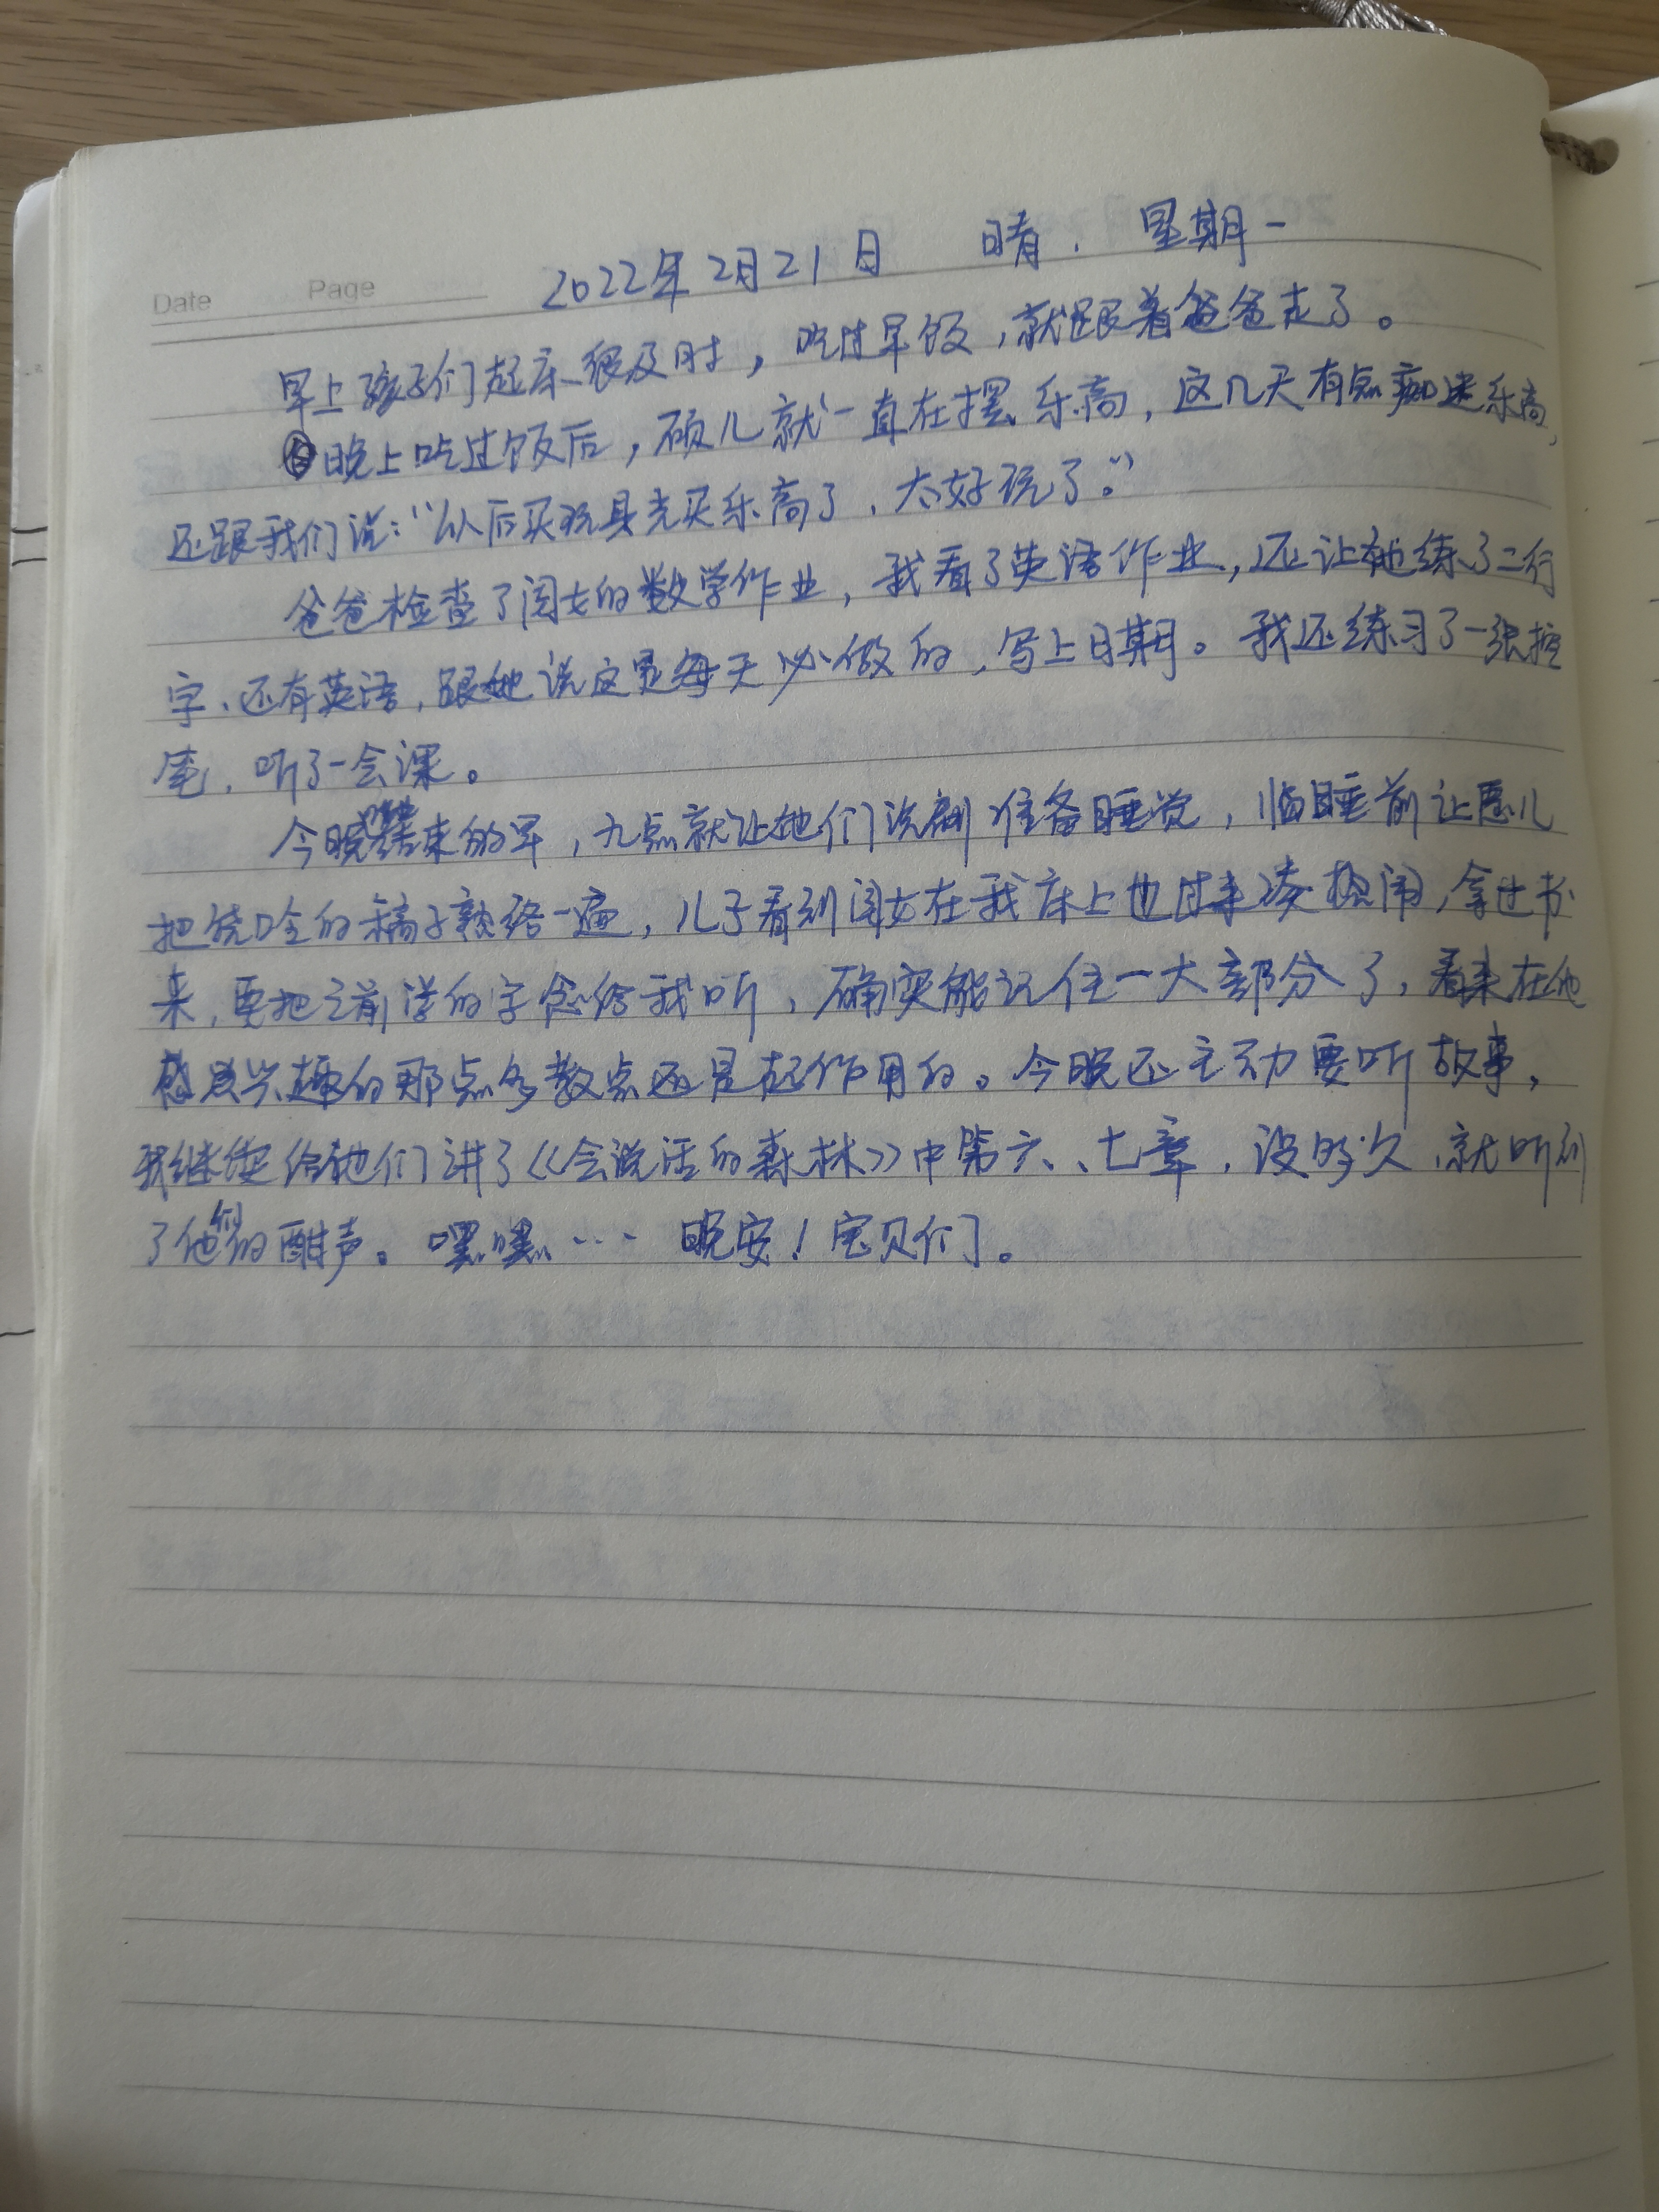 Date Page 2022年2月21日 晴. 星期一
早上孩子们起床很及时，吃过早饭，就跟着爸爸走了。
晚上吃过饭后，硕儿就一直在摆乐高，这几天有点痴迷乐高，
还跟我们说：“以后买玩具光买乐高了，太好玩了。”
爸爸检查了闺女的数学作业，我看了英语作业，还让她练了二行
字、还有英语，跟她说这是每天必做的，写上日期。我还练习了一张控
笔，听了一会课。
今晚结束的早，九点就让他们洗刷准备睡觉，临睡前让恩儿
把的稿子熟络一遍，儿子看到闺女在我床上也过来凑热闹，拿过书
来，要把之前学的字念给我听，确实能记住一大部分了，看来在他
感兴趣的那点多教点还是起作用的。今晚还主动要听故事，
我继续给他们讲了《会说话的森林》中第六、七章，没多久，就听到
了他们的酣声。嘿嘿… 晚安！宝贝们。